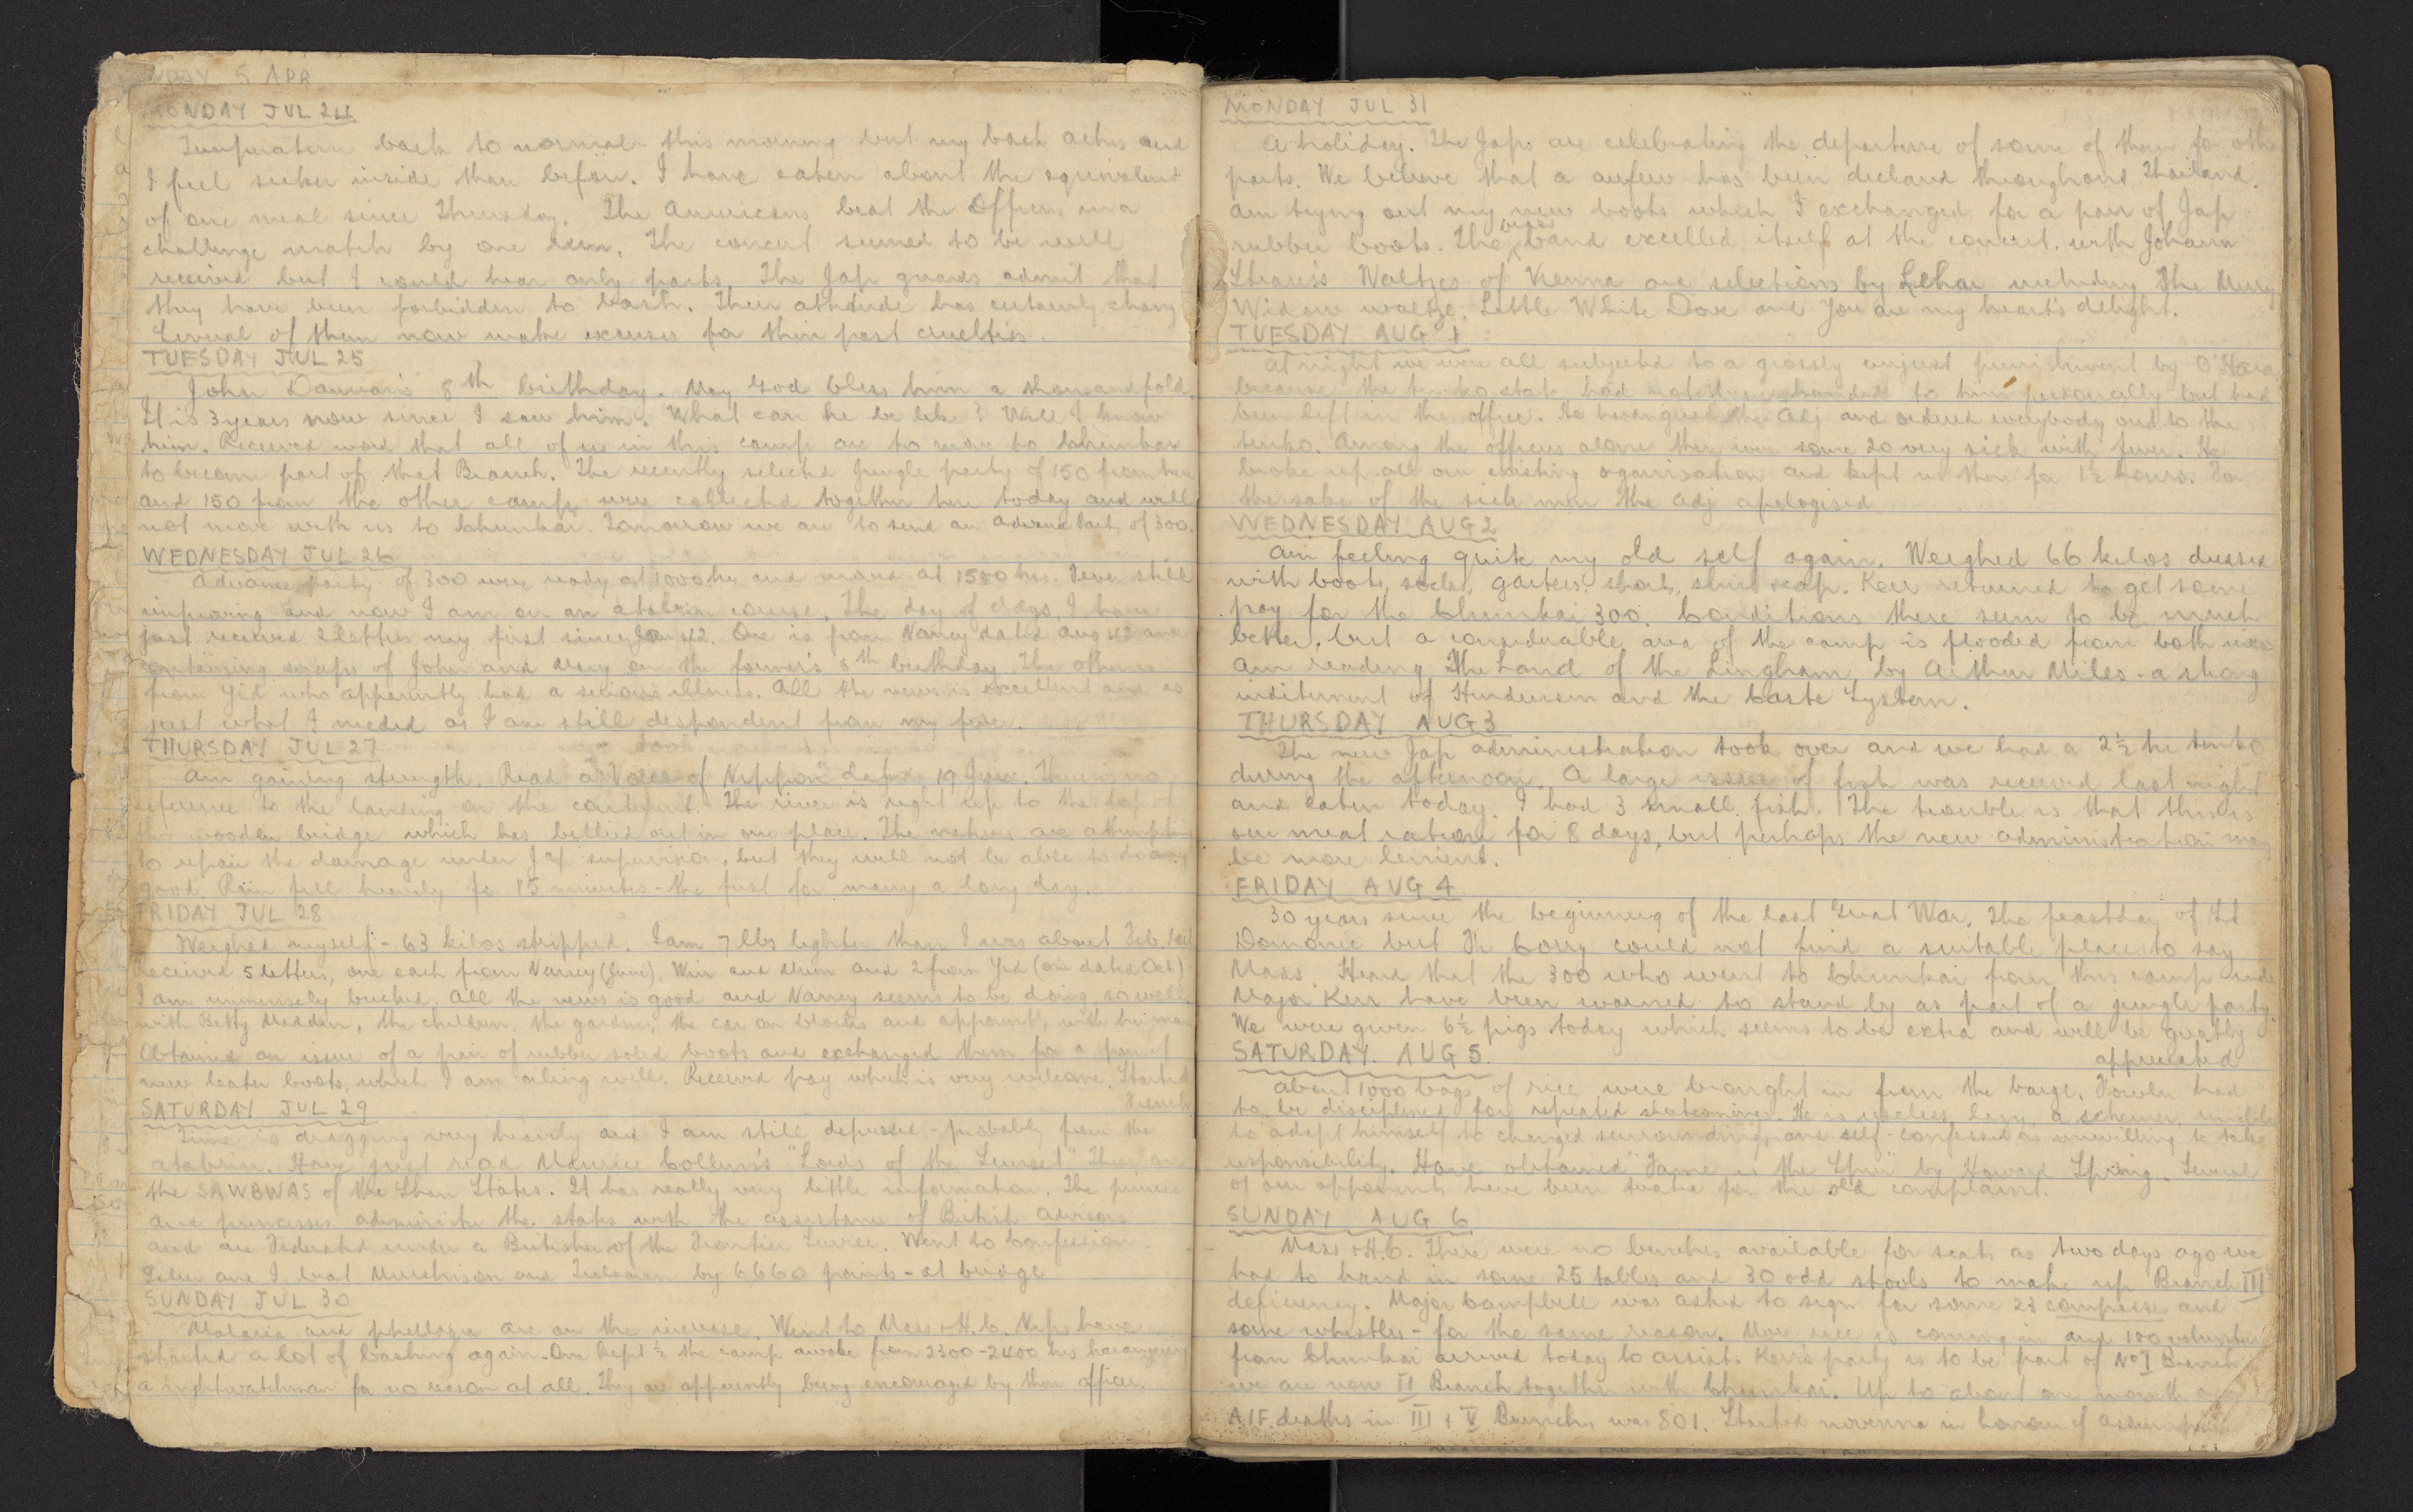 5 APR
MONDAY JUL 24
Temperature back to normal this morning but my back aches and
I feel sicker inside than before. I have eaten about the equivalent
of one meal since Thursday. The Americans beat the Officers in a
challenge match by one run. The concert seemed to be well
received but I could hear only parts. The Jap guards admit that
they have been forbidden to bash. Their attitude has certainly chang
Several of them now make excuses for their past cruelties.
TUESDAY JUL 25
John 8th birthday. May God bless him a thousandfold.
It is 3 years now since I saw him. What can he be like? Will I know
him. Received word that all of us in this camp are to move to Chunkai
to become part of that Branch. The recently selected Jungle party of 150 from here
and 150 from the other camps were collected together here today and will
not move with us to Chunkai. Tomorrow we are to send an advance Party of 300.
WEDNESDAY JUL 26
Advance party of 300 were ready at 1000 hrs and moved at 1500 hrs. Fever still
improving and now I am on an atabrin course. The day of days, I have
just received 2 letters my first since Jan 42. One is from Nancy dated Aug 42 and
containing snaps of John and Mary on the former's 6th birthday. The other is
from Yid who apparently had a serious illness. All the news is excellent and is
just what I needed as I am still despondent from my fever.
THURSDAY JUL 27
Am gaining strength. Read a "Voice of Nippon" dated 19 June. There is no
reference to the landing on the continent. The river is right up to the top of
the wooden bridge which has bellied out in one place. The natives are attempting
to repair the damage under Jap supervision, but they will not be able to do any
good. Rain fell heavily for 15 minutes - the first for many a long day.
FRIDAY JUL 28
Weighed myself - 63 kilos stripped. I am 7 lbs lighter than I was about Feb. last
Received 5 letters, one each from Nancy (June), Win and Mum and 2 from Yid (one dated Oct)
I am immensely bucked. All the news is good and Nancy seems to be doing so well
with Betty Madden, the children, the garden, the car on blocks and apparently with her
Obtained an issue of a pair of rubber soled boots and exchanged them for a pair of
new leather boots, which I am oiling well. Received pay which is very welcome. Started
French
SATURDAY JUL 29
Time is dragging very heavily and I am still depressed - probably from the
atabrin. Have just read Maurice Collins's "Lords of the Sunset" They are
the SAWBWAS of the Shan States. It has really very little information. The princes
and princesses administer the states with the assistance of British advisors
and are Federated under a Britisher of the Frontier Service. Went to Confession.
and I beat Murchison and by 6660 points - at bridge
SUNDAY JUL 30
Malaria and phellagra are on the increase. Went to Mass + H.C. Nips have
started a lot of bashing again. One kept ½ the camp awake from 2300-2400 hrs haranguing
a nightwatchman for no reason at all. They are apparently being encouraged by their officer.
MONDAY JUL 31
A holiday. The Japs are celebrating the departure of some of them for other
parts. We believe that a curfew has been declared throughout Thailand.
Am trying out my new boots which I exchanged for a pair of Jap
rubber boots. The brass band excelled itself at the concert with Johann
Strauss's Waltzes of Vienna and selections by Lehar including The Merry
Widow waltze, Little White Dove and You are my heart's delight.
TUESDAY AUG 1
At night we were all subjected to a grossly unjust punishment by O'Hara
because the tenko state had not been handed to him personally but had
been left in the office. He harangued the Adj and ordered everybody out to the
tenko. Among the officers alone there were some 20 very sick with fever. He
broke up all our existing organisation and kept us there for 1½ hours. For
the sake of the sick men the Adj apologised.
WEDNESDAY AUG 2
Am feeling quite my old self again. Weighed 66 kilos dressed
with boots, socks, gaiters, shorts, shirt + cap. Kerr returned to get some
pay for the Chunkai 300. Conditions there seem to be much
better, but a considerable area of the camp is flooded from both
Am reading The Land of the Lingham by Arthur Miles - a strong
inditement of Hinduism and the Caste System.
THURSDAY AUG 3
The new Jap administration took over and we had a 2½ hr tenko
during the afternoon. A large issue of fish was received last night
and eaten today. I had 3 small fish. The trouble is that this is
our meat ration for 8 days, but perhaps the new administration may
be more lenient.
FRIDAY AUG 4
30 years since the beginning of the last Great War. The feastday of St
Domonic but Fr Corry could not find a suitable place to say
Mass. Heard that the 300 who went to Chunkai from this camp under
Major Kerr have been warned to stand by as part of a jungle party.
We were given 6½ pigs today which seems to be extra and will be greatly
appreciated
SATURDAY AUG 5
About 1000 bags of rice were brought in from the barge. Fowler had
to be disciplined for repeated shortcomings. He is useless, lazy, a schemer, unable
to adapt himself to changed surroundings and self-confessed as unwilling to take
responsibility. Have obtained "Fame is the Spur" by Howard Spring. Several
of our opponents have been for the old complaint.
SUNDAY AUG 6
Mass + H.C. There were no benches available for seats as two days ago we
had to hand in some 25 tables and 30 odd stools to make up Branch III
deficiency. Major Campbell was asked to sign for some 23 compasses and
some whistles - for the same reason. More rice is coming in and 100 volunteers
from Chunkai arrived today to assist. Kerr's party is to be part of No I Branch
we are now II Branch together with Chunkai. Up to about one month ago
A.I.F. deaths in III + V Branches was 801. Started novenna in honour of